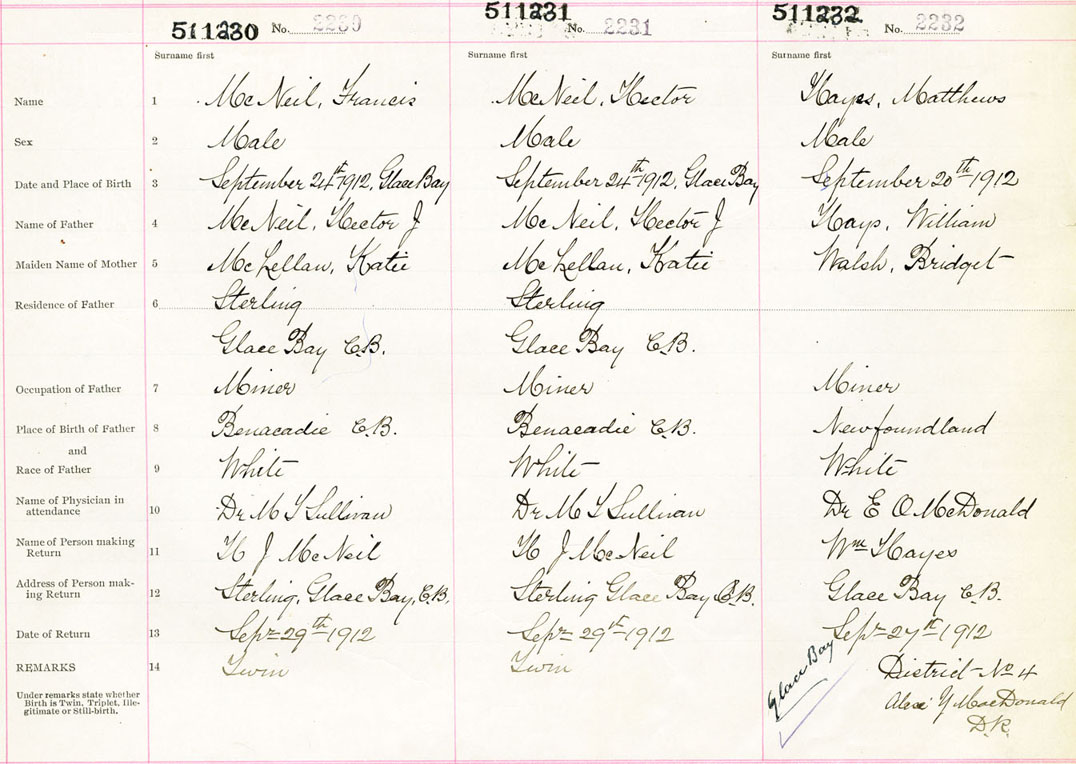 511230 No. 2230 511231 No. 2231 511232 No. 2232
Surname first Surname first Surname first
Name 1 McNeil, Francis McNeil, Hector Hayes, Matthews
Sex 2 Male Male Male
Date and Place of Birth 3 September 24th 1912, Glace Bay September 24th 1912, Glace Bay September 20th 1912
Name of Father 4 McNeil, Hector J McNeil, Hector J Hays, William
Maiden Name of Mother 5 McLellan, Katie McLellan, Katie Walsh, Bridget
Residence of Father 6 Sterling Sterling
Glace Bay C.B. Glace Bay C.B.
Occupation of Father 7 Miner Miner Miner
Place of Birth of Father 8 Benacadie C.B. Benacadie C.B. Newfoundland
and
Race of Father 9 White White White
Name of Physician in
attendance 10 Dr M T Sullivan Dr M T Sullivan Dr E O McDonald
Name of Person making
Return 11 H J McNeil H J McNeil Wm Hayes
Address of Person mak-
ing Return 12 Sterling, Glace Bay, C.B. Sterling Glace Bay C.B. Glace Bay C.B.
Date of Return 13 Sept 29th 1912 Sept 29th 1912 Sept 27th 1912
REMARKS 14 Twin Twin Glace Bay District No 4
Under remarks state whether
Birth is Twin, Triplet, Ille-
gitimate or Still-birth.
MacDonald
D.R.